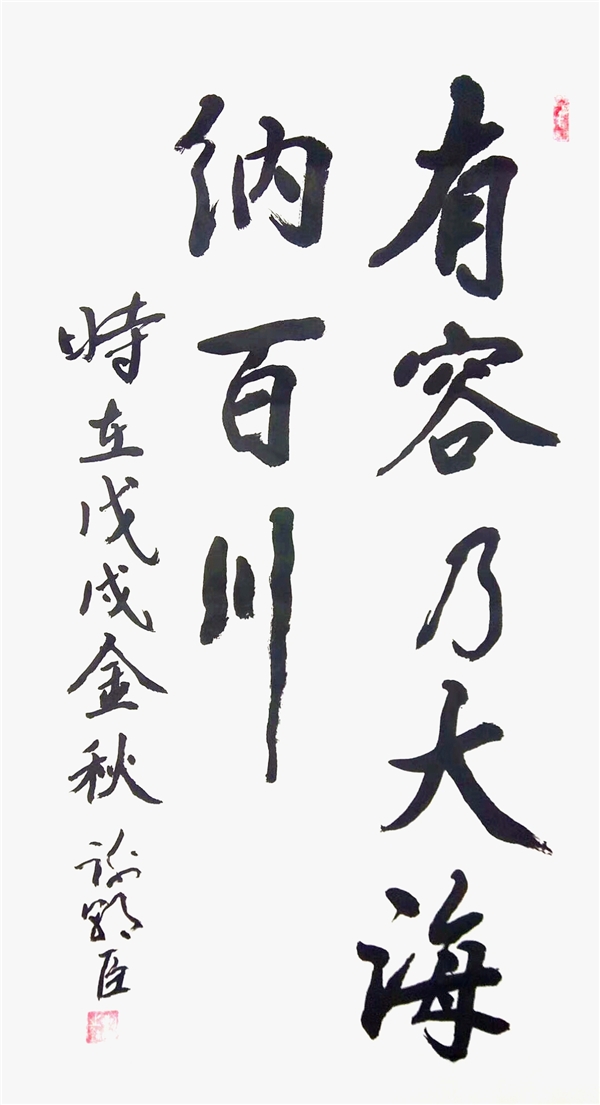 有容乃大海
纳百川
時在戊戌金秋
臣